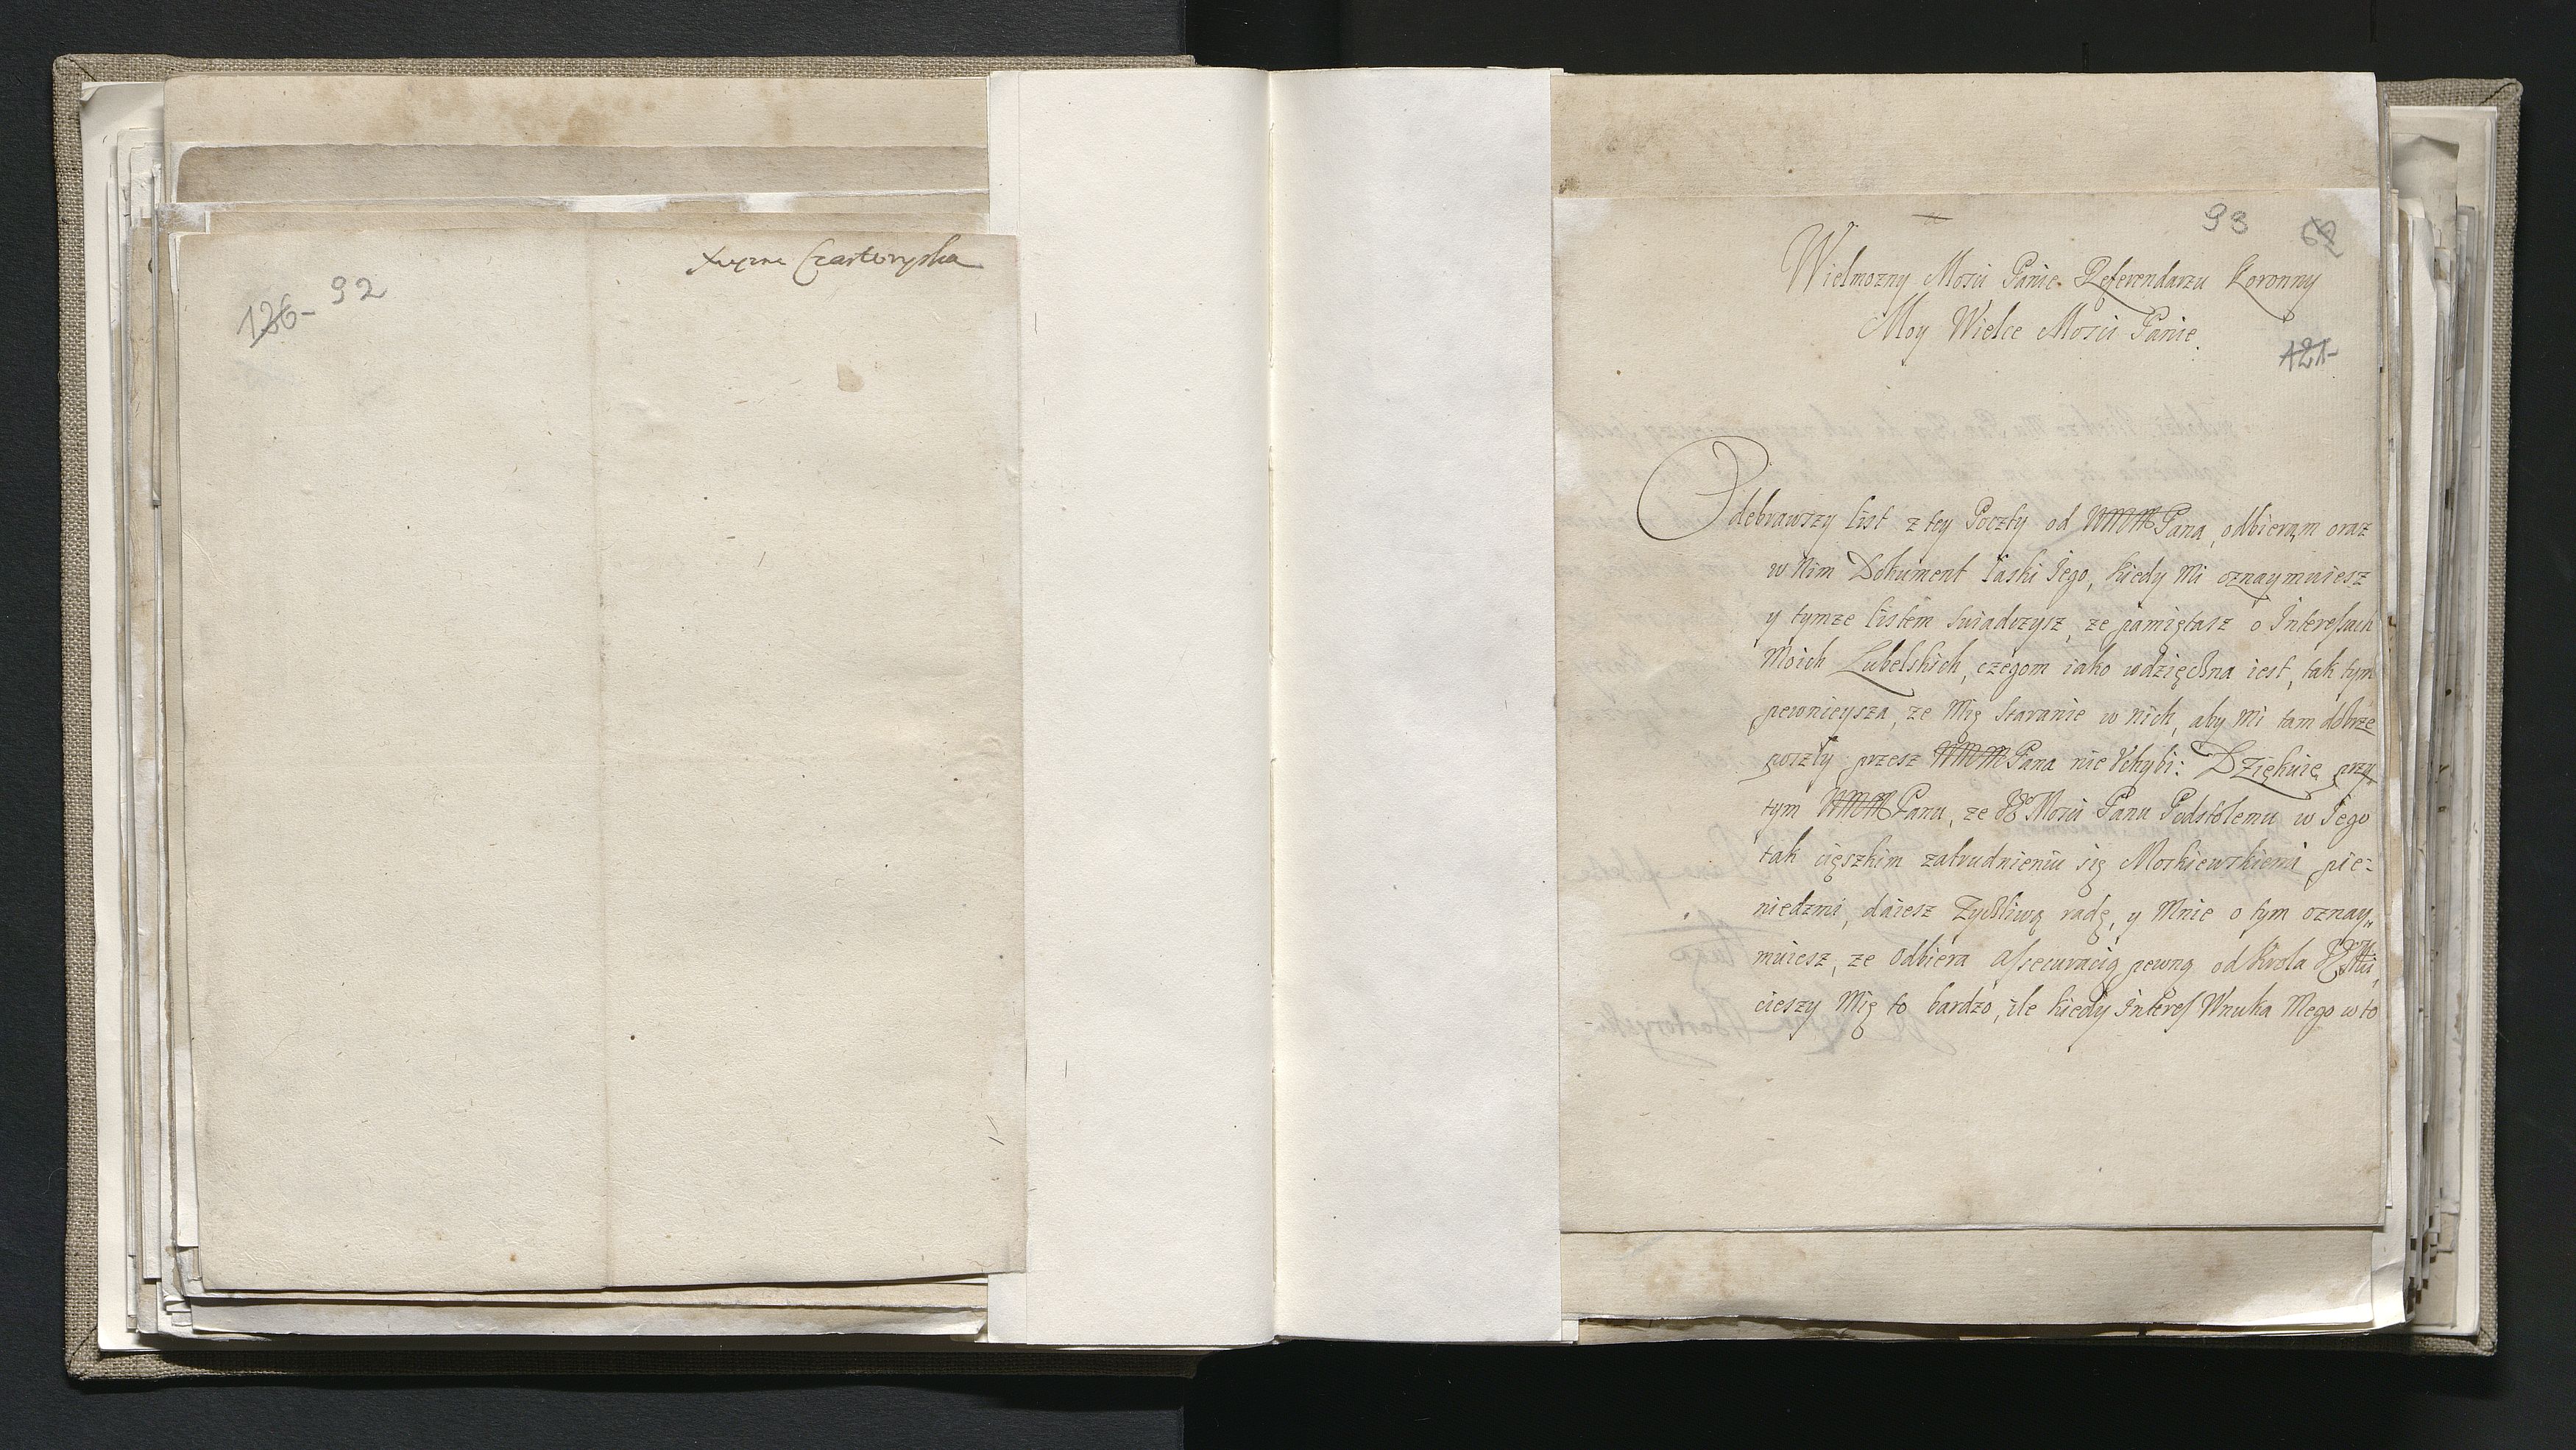 Xięzna Czartoryska
126- 92
93 62
Wielmozny Mosci Panie Referendarzu Koronny
Moy Wielce Mosci Panie.
121-
Odebrawszy list z tey Poczty od WMM Pana, odbieram oraz
w Nim Dokument łaski Jego, kiedy Mi oznaymuiesz
y tymze listem swiadczysz, ze pamiętasz o Interessach
Moich Lubelskich, czegom iako wdzięczna iest, tak tym
pewnieysza, ze Mię staranie w nich, aby Mi tam dobrze
poszły przesz WMM Pana nie Vchybi: Dziękuię przy
tym WMM Panu, ze Mosci Panu Podstolemu w Jego
tak cięszkim zatrudnieniu się Moskiewskiemi pie-
niedzmi, daiesz Zycliwą radę, y Mnie o tym oznay„
muiesz, ze odbiera assecuracią pewną od Krola
cieszy Mię to bardzo, ile kiedy Interes Wnuka Mego w to